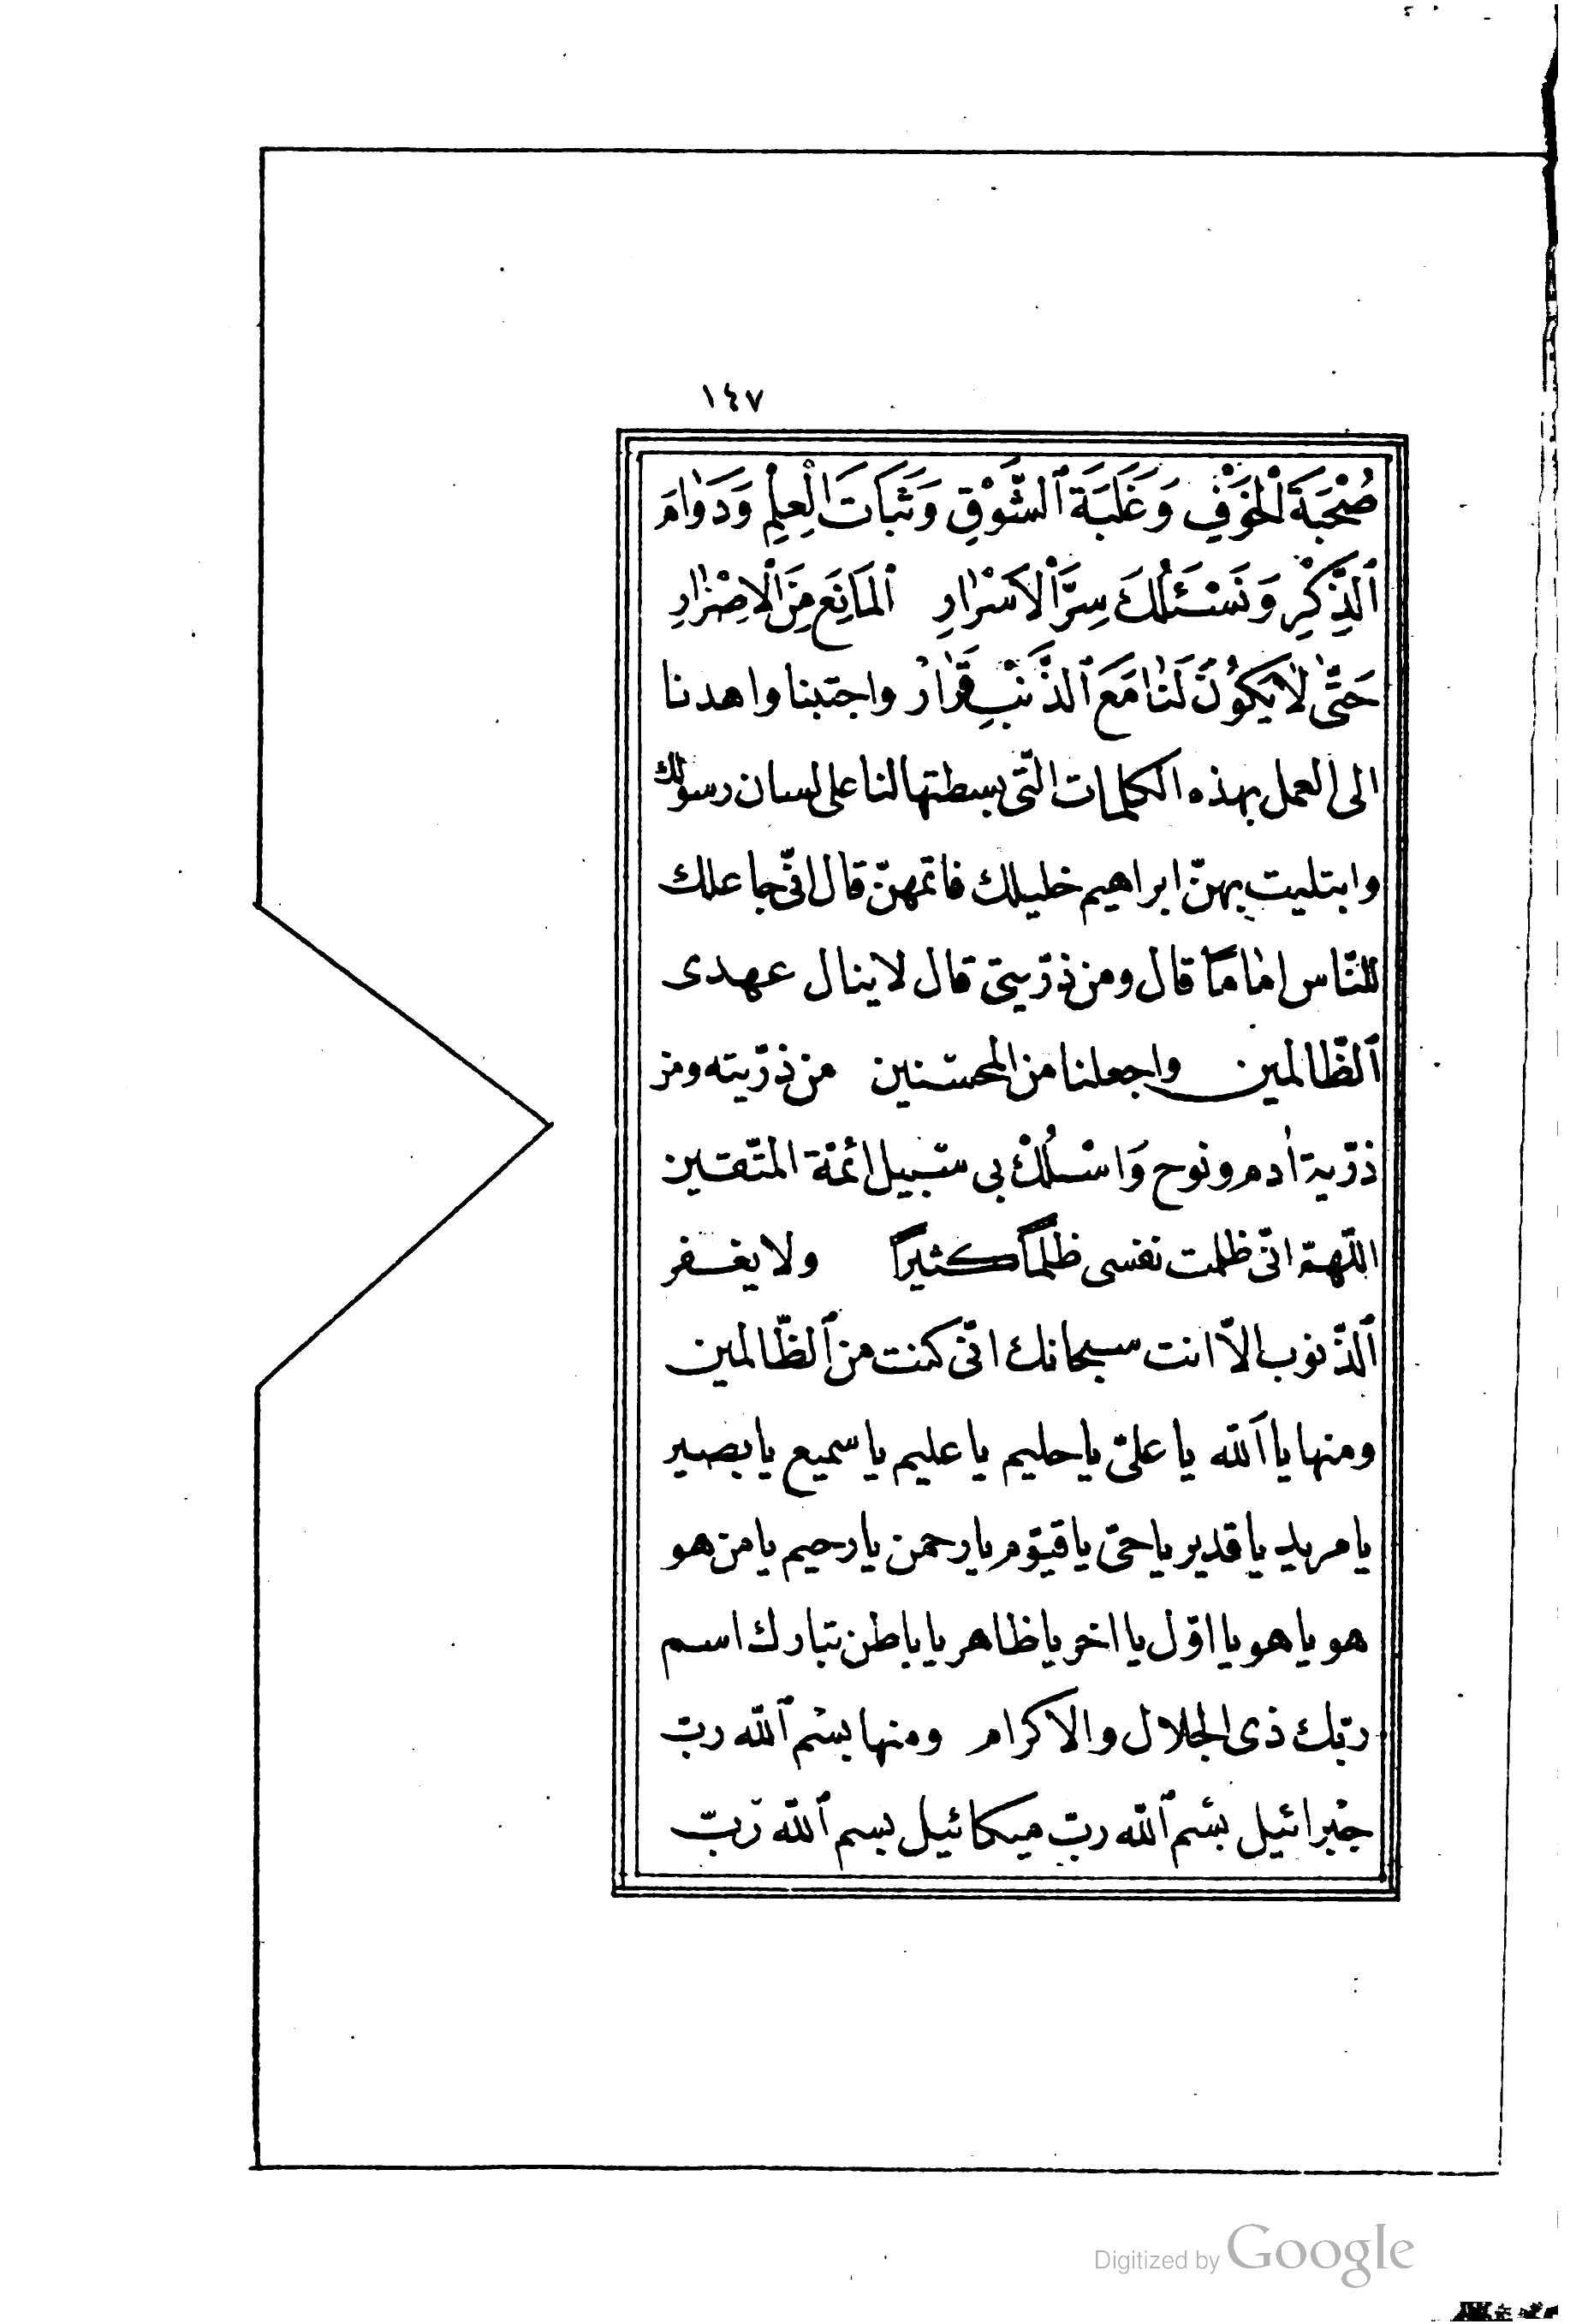 ١٤٧
صُحْبَةَ الْخَوْفِ وَغَلَبَةَ ٱلشَّوْقِ وَثَبَاتَ الْعِلْمِ وَدَوٰامَ
ٱلذِّكْرِ وَنَسْـَٔلُكَ سِرَّ ٱلْاَسْرٰارِ ٱلْمَانِعَ مِنَ ٱلْاِصْرٰارِ
حَتّٰى لٰا يَكُوُنَ لَنٰا مَعَ ٱلذَّنْبِ قَرٰارْ واجتبنا واهدنا
الى العمل بهذه الكلمات الّتى بسطتها لنا على لسان رسولك
وابتليت بهنّ ابراهيم خليلك فاتمّهنّ قال انّى جاعلك
للنّاس امٰامًا قال ومن ذرّيتى قال لا ينال عهدى
ٱلظّالمين واجعلنا من المحسنين من ذرّيته ومن
ذرّية اٰدم ونوح وَاسْلُكْ بى سبيل ائمّة المتّقين
اللّهمّ انّى ظلمت نفسى ظلمًا كثيرًا ولا يغفر
ٱلذّنوب الاّ انت سبحانك انّى كنت من ٱلظّالمين
ومنها يا اَللّه يا علىّ يا حليم يا عليم يا سميع يا بصير
يا مريد يا قدير يا حىّ يا قيّوم يا رحمن يا رحيم يا من هو
هو يا هو يا اوّل يا اخر يا ظاهر يا باطن تبارك اسم
ربّك ذى الجلال والاكرام ومنها بسْم ٱللّه ربّ
جبْرائيل بسْم ٱللّه ربّ ميكائيل بسم ٱللّه رَبّ
Digitized by Google